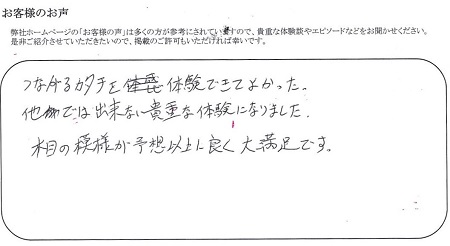 お客様のお声
弊社ホームページの「お客様の声」は多くの方が参考にされていますので、貴重な体験談やエピソードなどをお聞かせください。
是非ご紹介させていただきたいので、掲載のご許可もいただければ幸いです。
つながるカタチを 体験できてよかった。
他では出来ない貴重な体験になりました。
木目の模様が予想以上に良く大満足です。